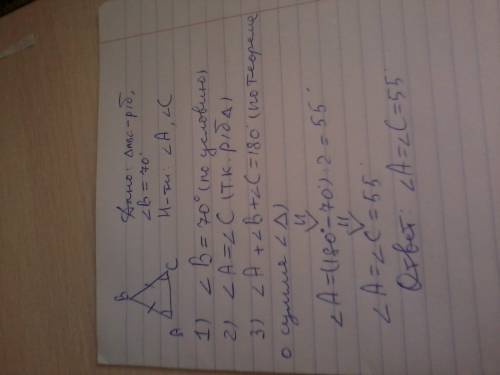 Дано: Δтвс - р/б,
∠B = 70°
Н-ти: ∠A, ∠C
B
A
C
1) ∠B = 70° (по условию)
2) ∠A = ∠C (т.к. р/б Δ)
3) ∠A + ∠B + ∠C = 180° (по теореме
о сумме ∠ Δ)
∠A = (180° - 70°) : 2 = 55°
∠A = ∠C = 55°
Ответ: ∠A = ∠C = 55°